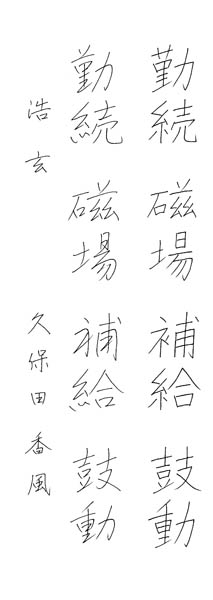 勤続 磁場 補給 鼓動
勤続 磁場 補給 鼓動
浩玄 久保田香風